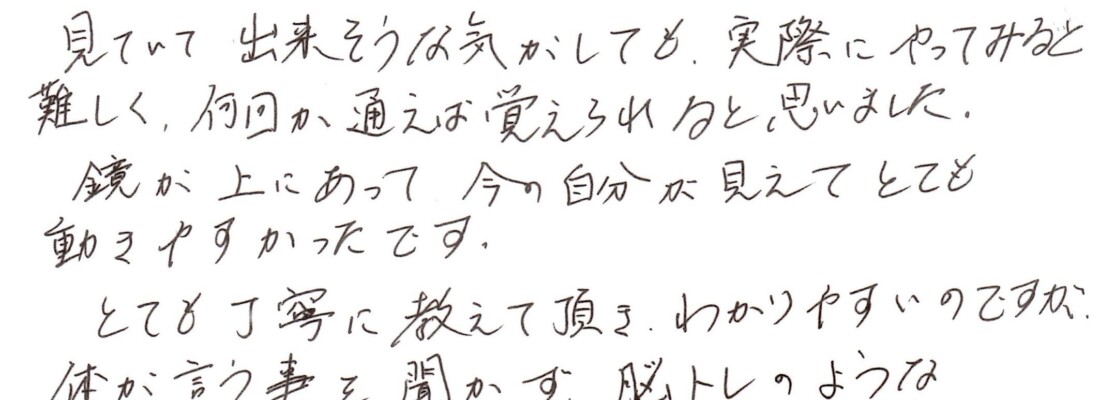 見ていて出来そうな気がしても、実際にやってみると
難しく、何回か通えば覚えられると思いました。
鏡が上にあって今の自分が見えてとても
動きやすかったです。
とても丁寧に教えて頂き、わかりやすいのですが、
体が言う事を聞かず、脳トレのような